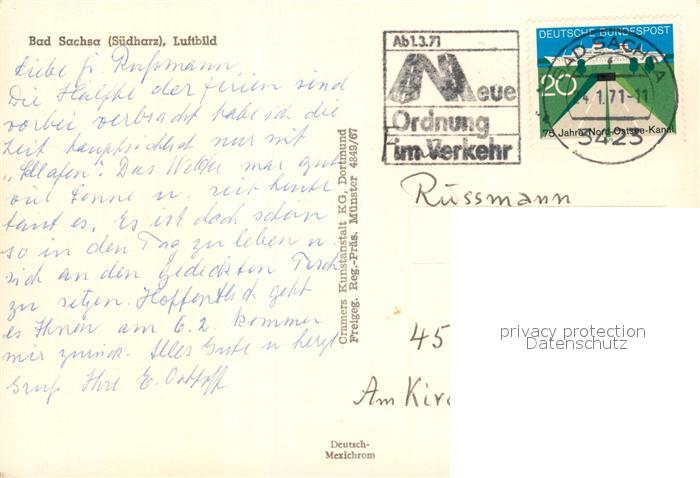 Bad Sachsa (Südharz), Luftbild
Liebe Fr. Rußmann,
Die Hälfte der Ferien sind
vorbei verbracht habe ich die
Zeit hauptsächlich nur mit
"Schlafen". Das Wetter war gut
viel Sonne u. seit heute
taut es. Es ist doch schön
so in den Tag zu leben u.
sich an den gedeckten Tisch
zu setzen. Hoffentlich geht
es Ihnen am 6.2. kommen
wir zurück. Alles Gute u. herzl.
Gruß Ihre E.
Cramers Kunstanstalt KG, Dortmund
Freigeg. Reg.-Präs. Münster 4849/67
Deutsch-
Mexichrom
Ab 1.3.71
Neue
Ordnung
im Verkehr
DEUTSCHE BUNDESPOST
20
75 Jahre Nord-Ostsee-Kanal
BAD SACHSA
f
1.71-11
3423
Russmann
45
Am Kirc
privacy protection
Datenschutz